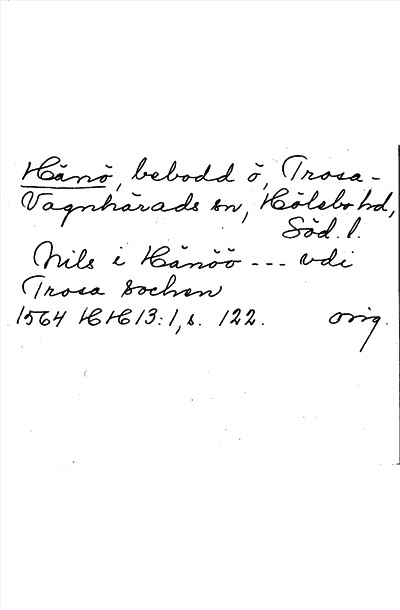 Hånö, bebodd ö, Trosa-
Vagnhärads sn, Hölebo hd,
Söd. l.
Nils i Hånöö --- vdi
Trosa sochen
1564 HH 13:1, s. 122. orig.